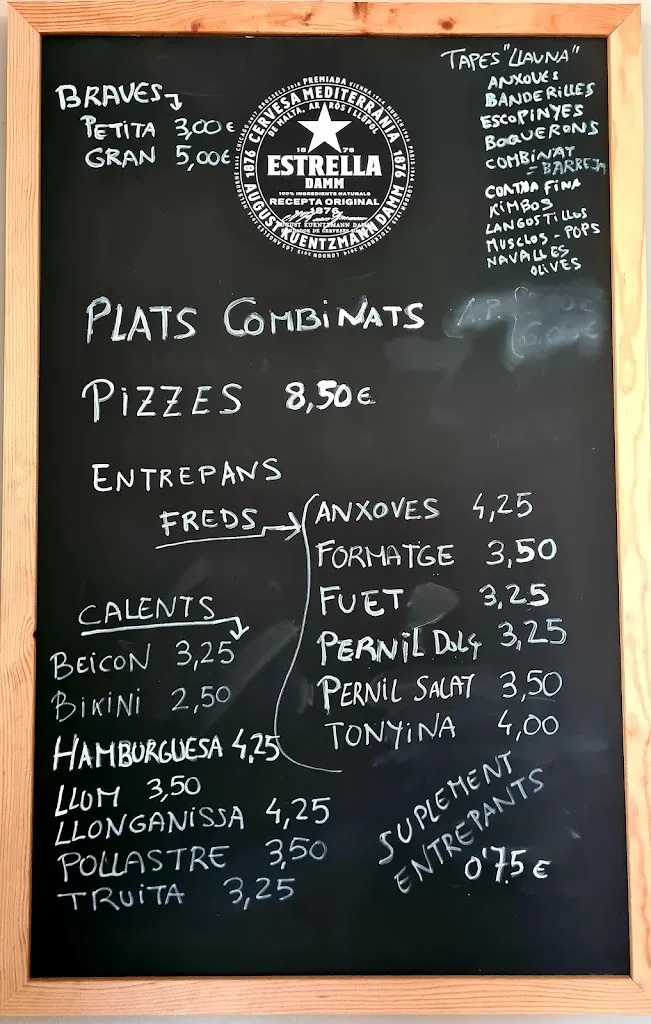 BRAVES
PETITA 3,00€
GRAN 5,00€
PREMIADA
CERVESA MEDITERRÀNIA
DE MALTA, ARRÒS I LLÚPOL
1876
1876
18 76
ESTRELLA
DAMM
100% INGREDIENTS NATURALS
RECEPTA ORIGINAL
1876
AUGUST KUENTZMANN DAMM
AUGUST KUENTZMANN DAMM
TAPES "LLAUNA"
ANXOVES
BANDERILLES
ESCOPINYES
BOQUERONS
COMBINAT
=BARREJA
CONTRA FINA
KIMBOS
LANGOSTILLOS
MUSCLOS - POPS
NAVALLES
OLIVES
PLATS COMBINATS
PIZZES 8,50€
ENTREPANS
FREDS
ANXOVES 4,25
FORMATGE 3,50
FUET 3,25
PERNIL DOLÇ 3,25
PERNIL SALAT 3,50
TONYINA 4,00
CALENTS
BEICON 3,25
BIKINI 2,50
HAMBURGUESA 4,25
LLOM 3,50
LLONGANISSA 4,25
POLLASTRE 3,50
TRUITA 3,25
SUPLEMENT
ENTREPANTS
0'75€